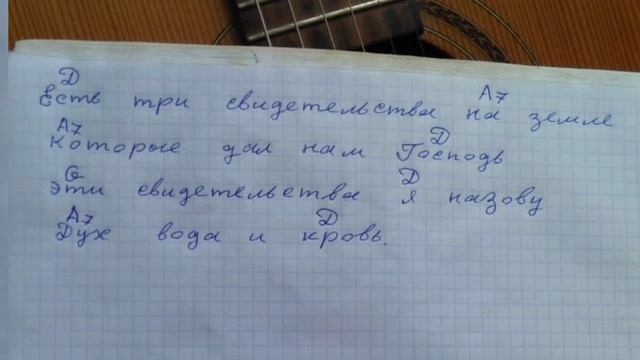 D A7
Есть три свидетельства на земле
A7 D
Которые дал нам Господь
G D
Эти свидетельства я назову
A7 D
Дух вода и кровь.